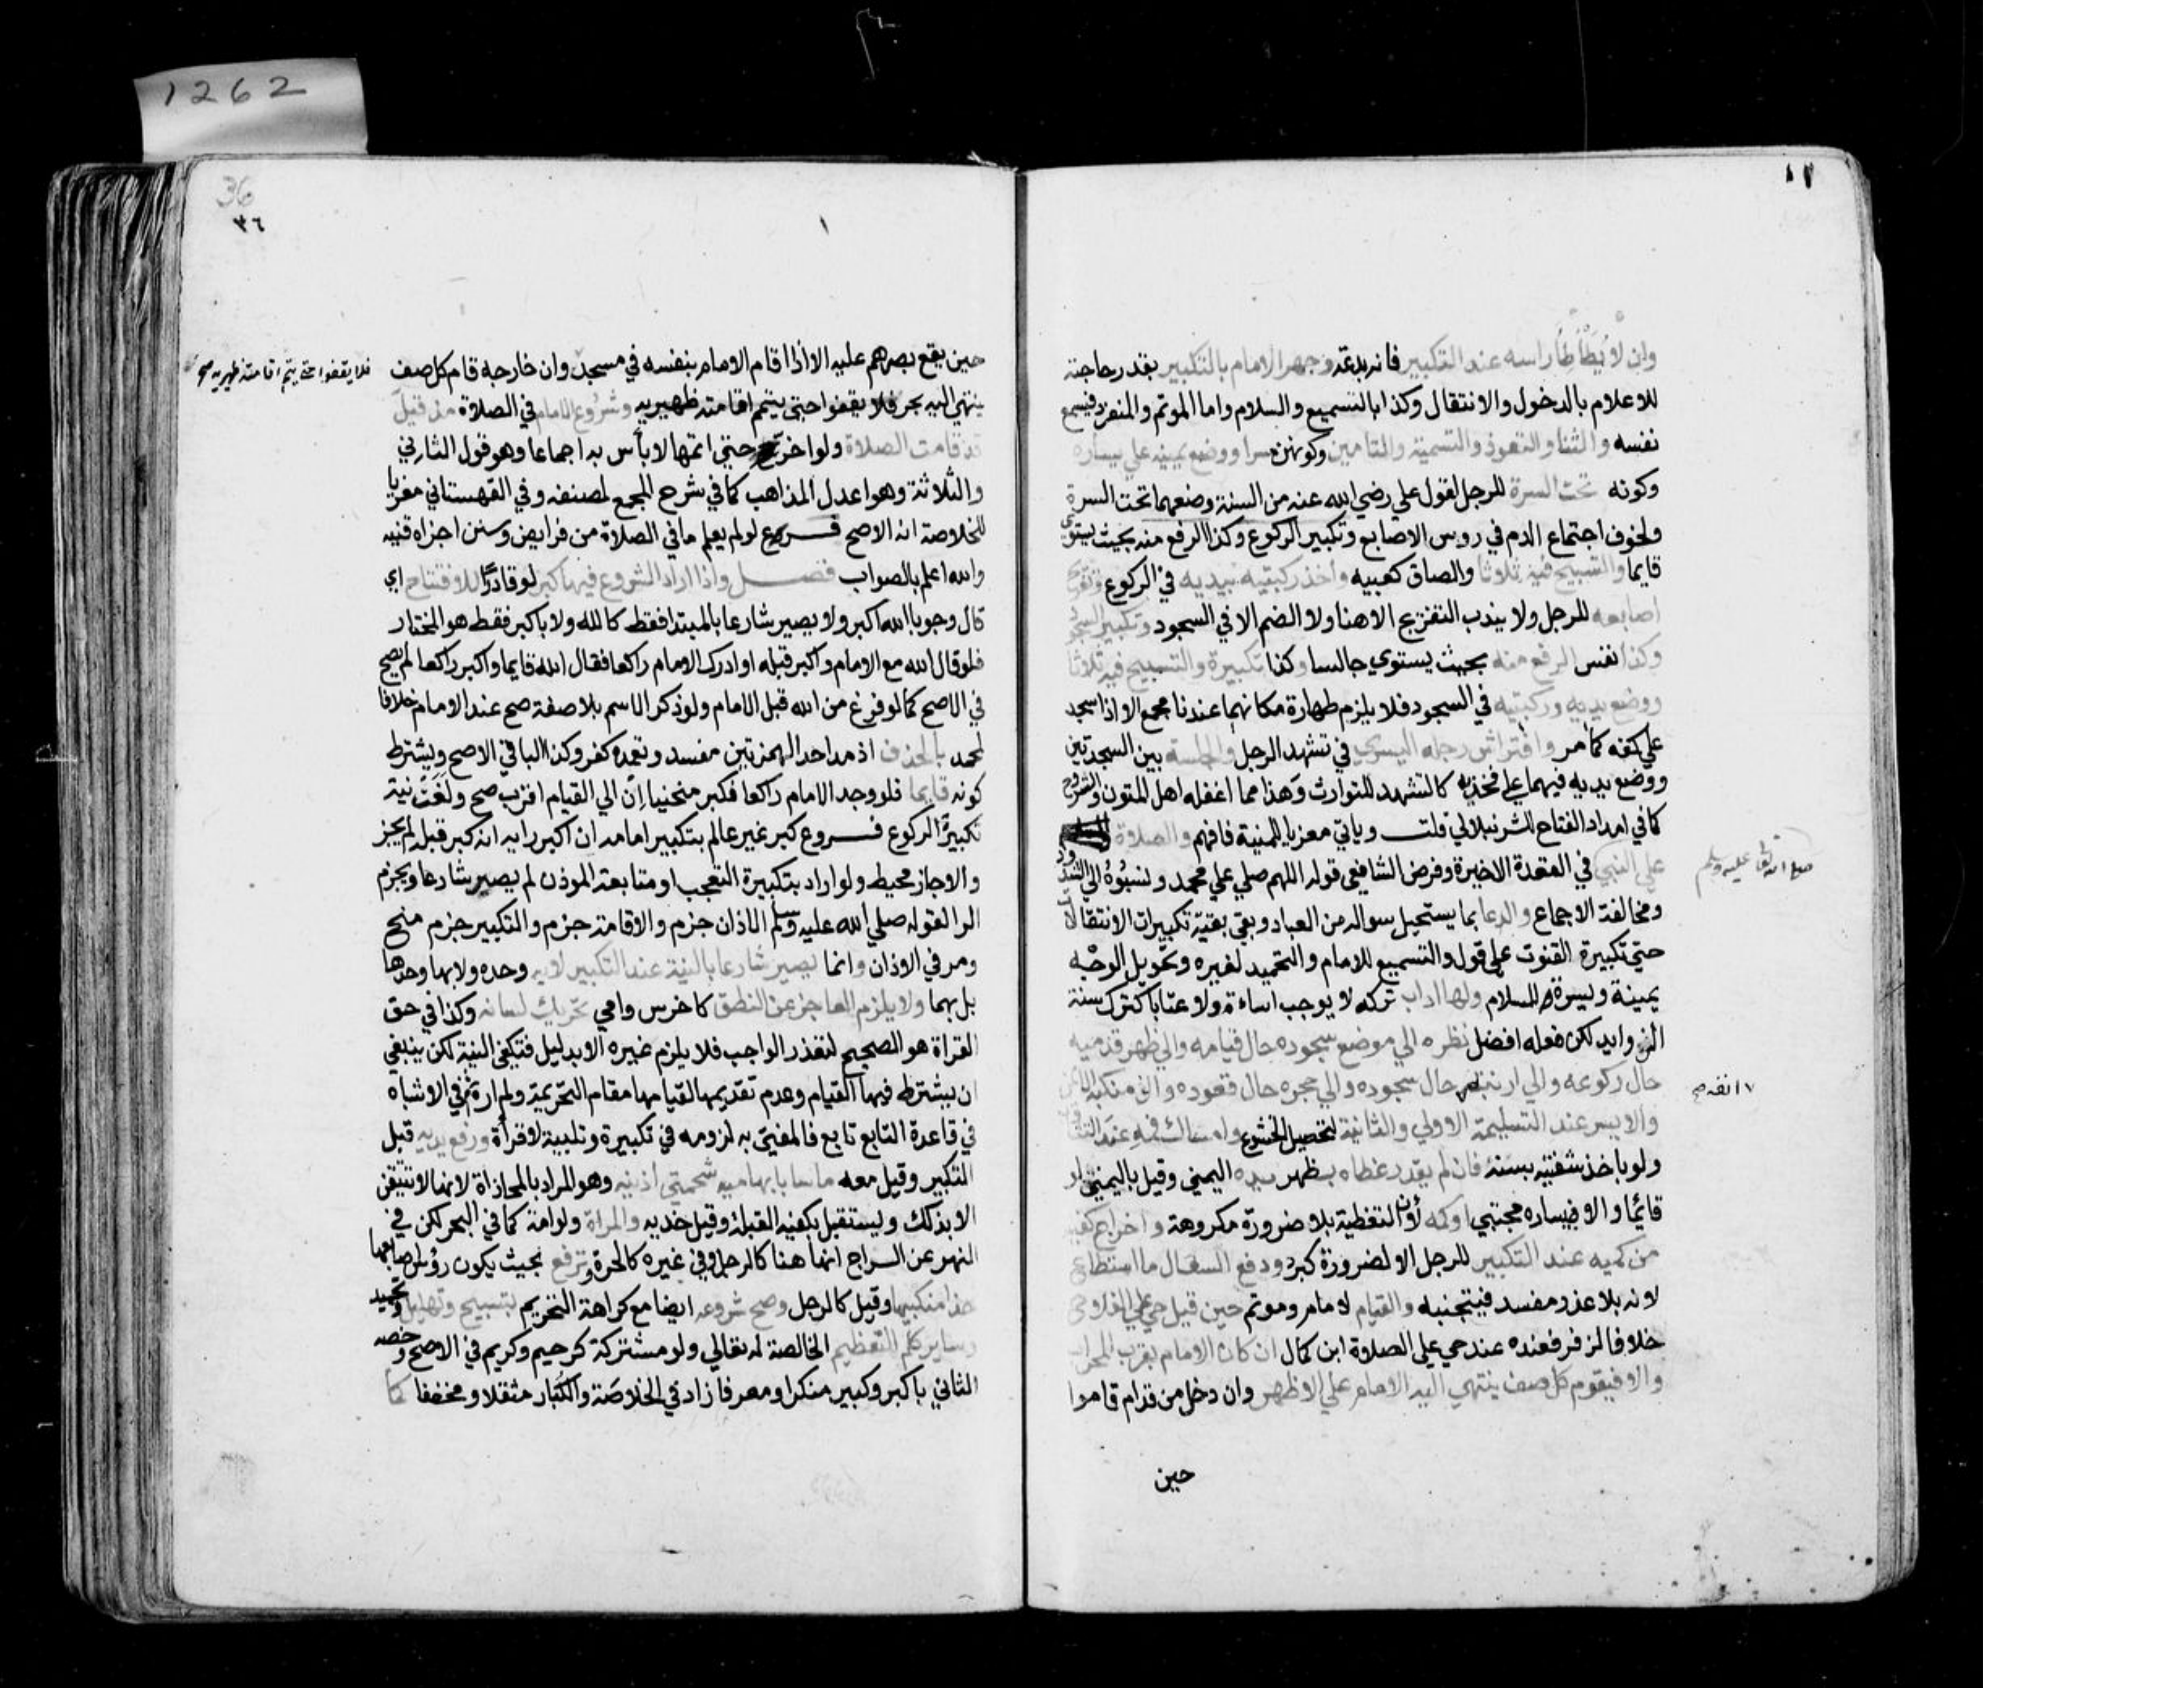 وان لا يطأطأ راسه عند التكبير فانه بدعة وجهر الامام بالتكبير بقدر حاجته
للاعلام بالدخول والانتقال وكذا بالتسميع والسلام واما الموتم والمنفرد فيسمع
نفسه والثنا والتعوذ والتسمية والتامين وكونهن سرا ووضع يمينه علي يساره
وكونه تحت السرة للرجل لقول علي رضي الله عنه من السنة وضعهما تحت السرة
ولخوف اجتماع الدم في روس الاصابع وتكبير الركوع وكذا الرفع منه بحيث يستوي
قايما والتسبيح فيه ثلاثا والصاق كعبيه واخذ ركبتيه بيديه في الركوع وتفريج
اصابعه للرجل ولا يندب التفريج الا هنا ولا الضم الا في السجود وتكبير السجود
وكذا نفس الرفع منه بحيث يستوي جالسا وكذا تكبيرة والتسبيح فيه ثلاثا
ووضع يديه وركبتيه في السجود فلا يلزم طهارة مكانهما عندنا مجمع الا اذا سجد
علي كفه كما مر وافتراش رجله اليسري في تشهد الرجل والجلسة بين السجدتين
ووضع يديه فيهما علي فخذيه كالتشهد للتوارث وهذا مما اغفله اهل المتون والشروح
كما في امداد الفتاح للشرنبلالي قلت وياتي معزيا للمنية فافهم والصلاة
علي النبي في القعدة الاخيرة وفرض الشافعي قوله اللهم صلي علي محمد ونسبوه الي الشذوذ
صلي الله تعالي عليه وسلم
ومخالفة الاجماع والدعا بما يستحيل سواله من العباد وبقي بقية تكبيرات الانتقالات
حتي تكبيرة القنوت علي قول والتسميع للامام والتحميد لغيره وتحويل الوجه
يمينة ويسرة للسلام ولها اداب تركه لا يوجب اساءة ولا عتابا كترك سنة
الزوايد لكن فعله افضل نظره الي موضع سجوده حال قيامه والي ظهر قدميه
حال ركوعه والي ارنبة حال سجوده والي حجره حال قعوده والي منكبه الايمن
انفه صح
والايسر عند التسليمة الاولي والثانية لتحصيل الخشوع وامساك فمه عند التثاوب
ولو باخذ شفتيه بسنه فان لم يقدر غطاه بظهر يده اليمني وقيل باليمني لو
قائما والا فيساره مجتبي او كمه لان التغطية بلا ضرورة مكروهة واخراج كفيه
من كميه عند التكبير للرجل الا لضرورة كبرد ودفع السعال ما استطاع
لانه بلا عذر مفسد فيتجنبه والقيام لامام وموتم حين قيل حي علي الفلاح
خلافا لزفر فعنده عند حي علي الصلاة ابن كمال ان كان الامام بقرب المحراب
والا فيقوم كل صف ينتهي اليه الامام علي الاظهر وان دخل من قدام قاموا
حين
36
٣٦
حين يقع بصرهم عليه الا اذا اقام الامام بنفسه في مسجد وان خارجه قام كل صف
فلا يقفوا حتي يتم اقامته ظهيريه صح
ينتهي اليه بحر فلا يقفوا حتي يتم اقامته ظهيريه وشروع الامام في الصلاة مذ قيل
قد قامت الصلاة ولو اخر حتي اتمها لا بأس به اجماعا وهو قول الثاني
والثلاثة وهو اعدل المذاهب كما في شرح المجمع لمصنفه وفي القهستاني معزيا
للخلاصة انه الاصح فروع لو لم يعلم ما في الصلاة من فرايض وسنن اجزاه قنيه
والله اعلم بالصواب فصل واذا اراد الشروع فيها كبر لو قادرا للافتتاح اي
قال وجوبا الله اكبر ولا يصير شارعا بالمبتدا فقط كالله ولا باكبر فقط هو المختار
فلو قال الله مع الامام واكبر قبله او ادرك الامام راكعا فقال الله قايما واكبر راكعا لم يصح
في الاصح كما لو فرغ من الله قبل الامام ولو ذكر الاسم بلا صفة صح عند الامام خلافا
لمحمد بالحذف اذ مد احد الهمزتين مفسد وتعمده كفر وكذا البا في الاصح ويشترط
كونه قايما فلو وجد الامام راكعا فكبر منحنيا ان الي القيام اقرب صح ولغت نية
تكبيرة الركوع فروع كبر غير عالم بتكبير امامه ان اكبر رايه انه كبر قبله لم يجز
والا جاز محيط ولو اراد بتكبيرة التعجب او متابعة الموذن لم يصير شارعا ويجزم
الرا لقوله صلي الله عليه وسلم الاذان جزم والاقامة جزم والتكبير جزم منح
ومر في الاذان وانما يصير شارعا بالنية عند التكبير لا به وحده ولا بها وحدها
بل بهما ولا يلزم العاجز عن النطق كاخرس وامي تحريك لسانه وكذا في حق
القراة هو الصحيح لتعذر الواجب فلا يلزم غيره الا بدليل فتكفي النية لكن ينبغي
ان يشترط فيها القيام وعدم تقديمها لقيامها مقام التحريمة ولم اره ثم في الاشباه
في قاعدة التابع تابع فالمفتي به لزومه في تكبيرة وتلبية لا قراة ورفع يديه قبل
التكبير وقيل معه ماسا بابهاميه شحمتي اذنيه وهو المراد بالمحاذاة لانها لا تتيقن
الا بذلك ويستقبل بكفيه القبلة وقيل خديه والمراة ولو امة كما في البحر لكن في
النهر عن السراج انها هنا كالرجل وفي غيره كالحرة ترفع بحيث يكون رؤس اصابعها
حذا منكبيها وقيل كالرجل وصح شروعه ايضا مع كراهة التحريم بتسبيح وتهليل وتحميد
وساير كلم التعظيم الخالصة له تعالي ولو مشتركة كرحيم وكريم في الاصح وخصه
الثاني باكبر وكبير منكرا ومعرفا زاد في الخلاصة والكبار مثقلا ومخففا كما
1262